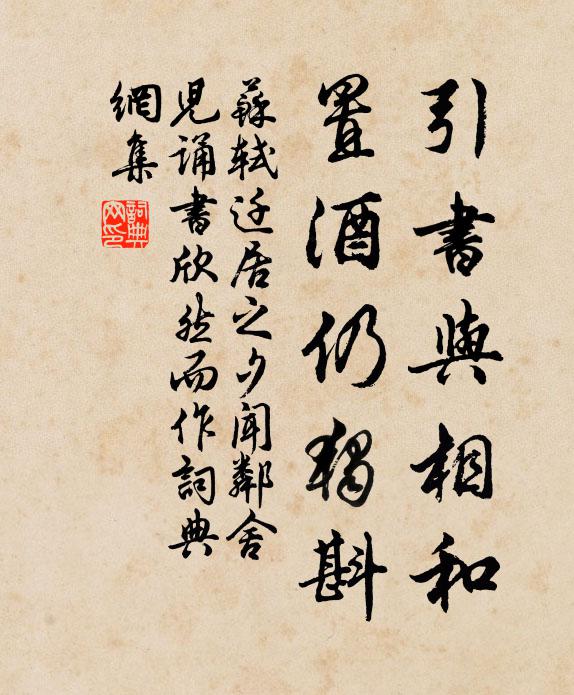 引書與相和
置酒仍獨斟
蘇軾遷居之夕聞鄰舍
兒誦書欣然而作詞典
網集
詞典網印